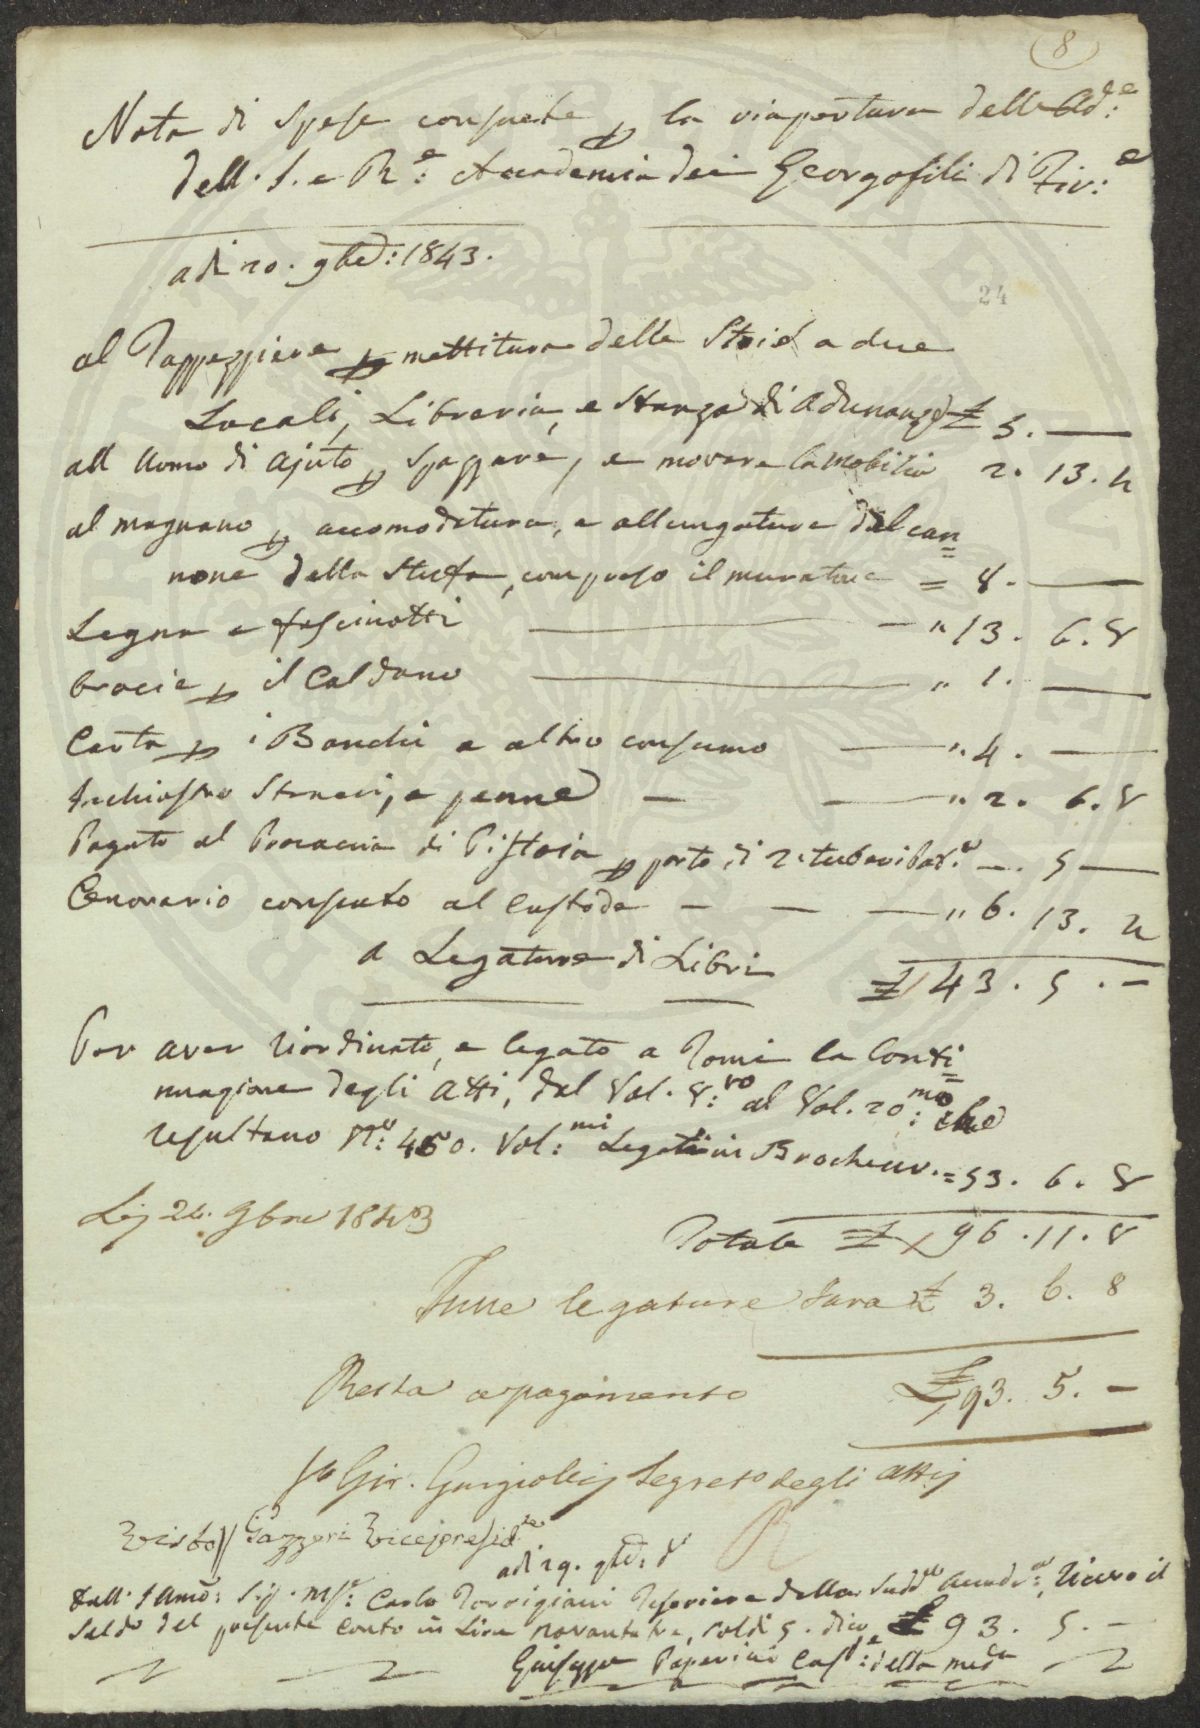 8
Nota di Spese consuete p la riapertura delle Ad:e
dell. I. e R.e: Accademia dei Georgofili di Fir:e
adi 20. 9bre: 1843.
24
al Tappezziere p mettitura delle Stoie a due
Locali, Libreria, e Stanza di Adunanze £ 5. —
all Uomo di Ajuto p spazzare, e movere la mobilia 2. 13. 4
al magnano p accomodatura, e allungatura del can=
none della Stufa, compreso il muratore = 8. —
Legna e fascinotti — " 13. 6. 8
bracie p il Caldano — " 1. —
Carta p i Banchi e altro consumo — " 4. —
Inchiostro Stracci, e penne — " 2. 6. 8
Pagato al Procaccia di Pistoia p porto di 2 —. 5 —
Onorario consueto al Custode — " 6. 13. 4
a Legature di Libri £ 43. 5. —
Per aver riordinato, e legato a Tomi la Conti=
nuazione degli Atti, dal Vol. 8:vo al Vol. 20:mo che
resultano N:o 460. Vol:mi Legati in Brocheur. = 53. 6. 8
Li 24. 9bre 1843
Totale £ 96. 11. 8
legature £ 3. 6. 8
Resta a pagamento £ 93. 5. —
Segreto degli atti
Visto Gazzeri Vicepresid.te
adi 29. 9bre: d
Dall. Illmo: Sig. M.se: Carlo Torrigiani Tesoriere della Sudd.a Accade:a, ricevo il
Saldo del presente Conto in Lire novantatre, soldi 5. dico £ 93. 5. —
Giuseppe Paperini Cust:e della med.a